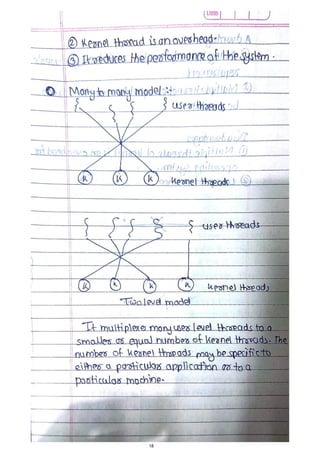 ② Kernel thread is an overhead.
③ It reduces the performance of the system.
Many to many model :-
user threads
K K K Kernel threads
user threads
K K K K kernel threads
Two level model
It multiplexe many user level threads to a
smaller or equal number of kernel threads. The
number of kernel threads may be specific to
either a particular application or to a
particular machine.
18